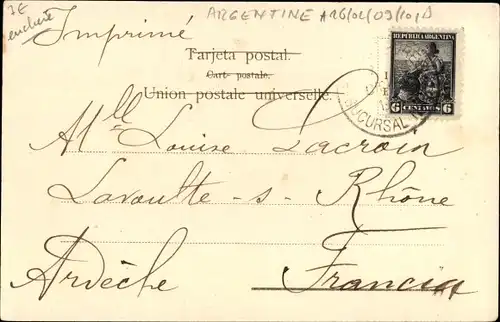 3E
enchère
ARGENTINE A26/02/09/10/B
Imprimé
Tarjeta postal.
Carte postale.
Union postale universelle.
REPUBLICA ARGENTINA
6 CENTAVOS 6
SUCURSAL
Mlle Louise Lacroix
Lavoulte-s-Rhône
Ardèche Francia